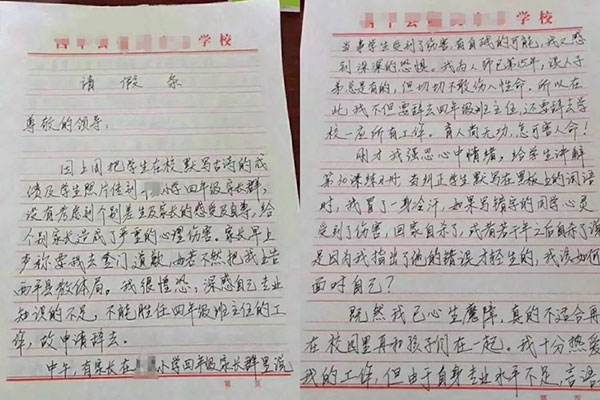 西平县 学校
请假条
尊敬的领导:
因上周把学生在校默写古诗的成
绩及学生照片传到 小学四年级家长群,
没有考虑到个别差生及家长的感受及自尊,给
个别家长造成了严重的心理伤害。家长早上
声称要我去登门道歉,如若不然把我上告
西平县教体局。我很惶恐,深感自己专业
知识的不足,不能胜任四年级班主任的工
作,故申请辞去。
中午,有家长在 小学四年级家长群里说
第 页
西平县 学校
当事学生受到了伤害,有自残的可能,我又感
到深深的恐惧。我为人师已第 年,误人子
弟总是有的,但切切不敢伤人性命。所以在
此我不但要辞去四年级班主任,还要辞去学
校一应所有工作。育人尚无功,怎可害人命!
刚才我强忍心中情绪,给学生讲解
第 课练习册,当纠正学生默写在黑板上的词语
时,我冒了一身冷汗,如果写错字的同学心灵
受到了伤害,回家自杀了,或者若干年之后自杀了说
是因为我指出了他的错误才轻生的,我该如何
面对自己?
既然我已心生魔障,真的不适合再
在校园里再和孩子们在一起。我十分热爱
我的工作,但由于自身专业水平不足,言语
第 页